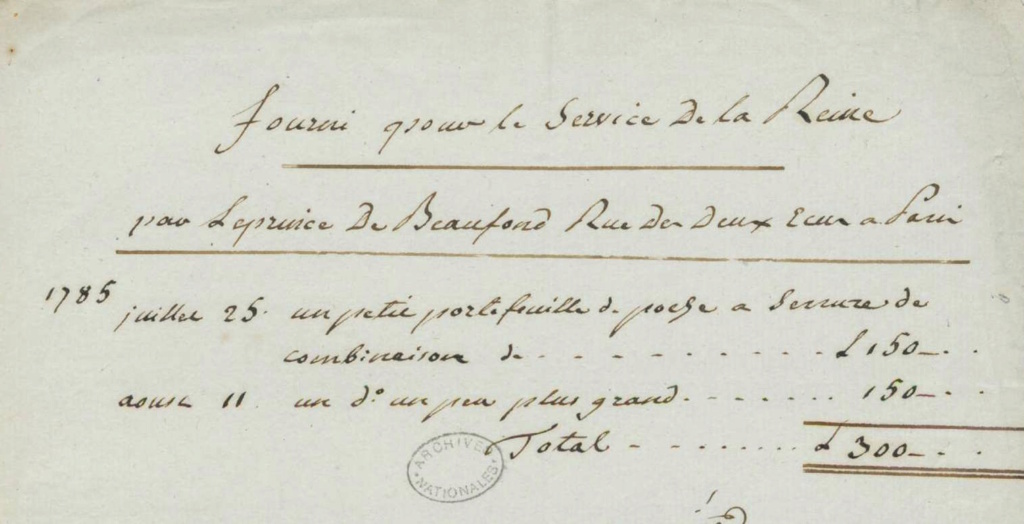 fourni pour le Service De la Reine
par Leprince De Beaufond Rue Des Deux Ecus a Paris
1785
juillet 25. un petit portefeuille de poche a Serrure de
combinaison de - - - - - - - - - £ 150 - . .
aoust 11 un d° un peu plus grand - - - - - - - 150 - . .
Total - - - - - - - £ 300 - . .
ARCHIVES NATIONALES